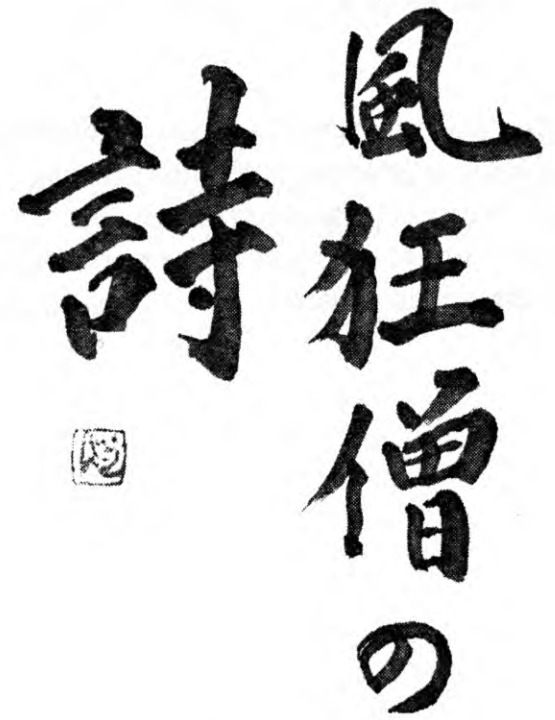 風狂僧の
詩